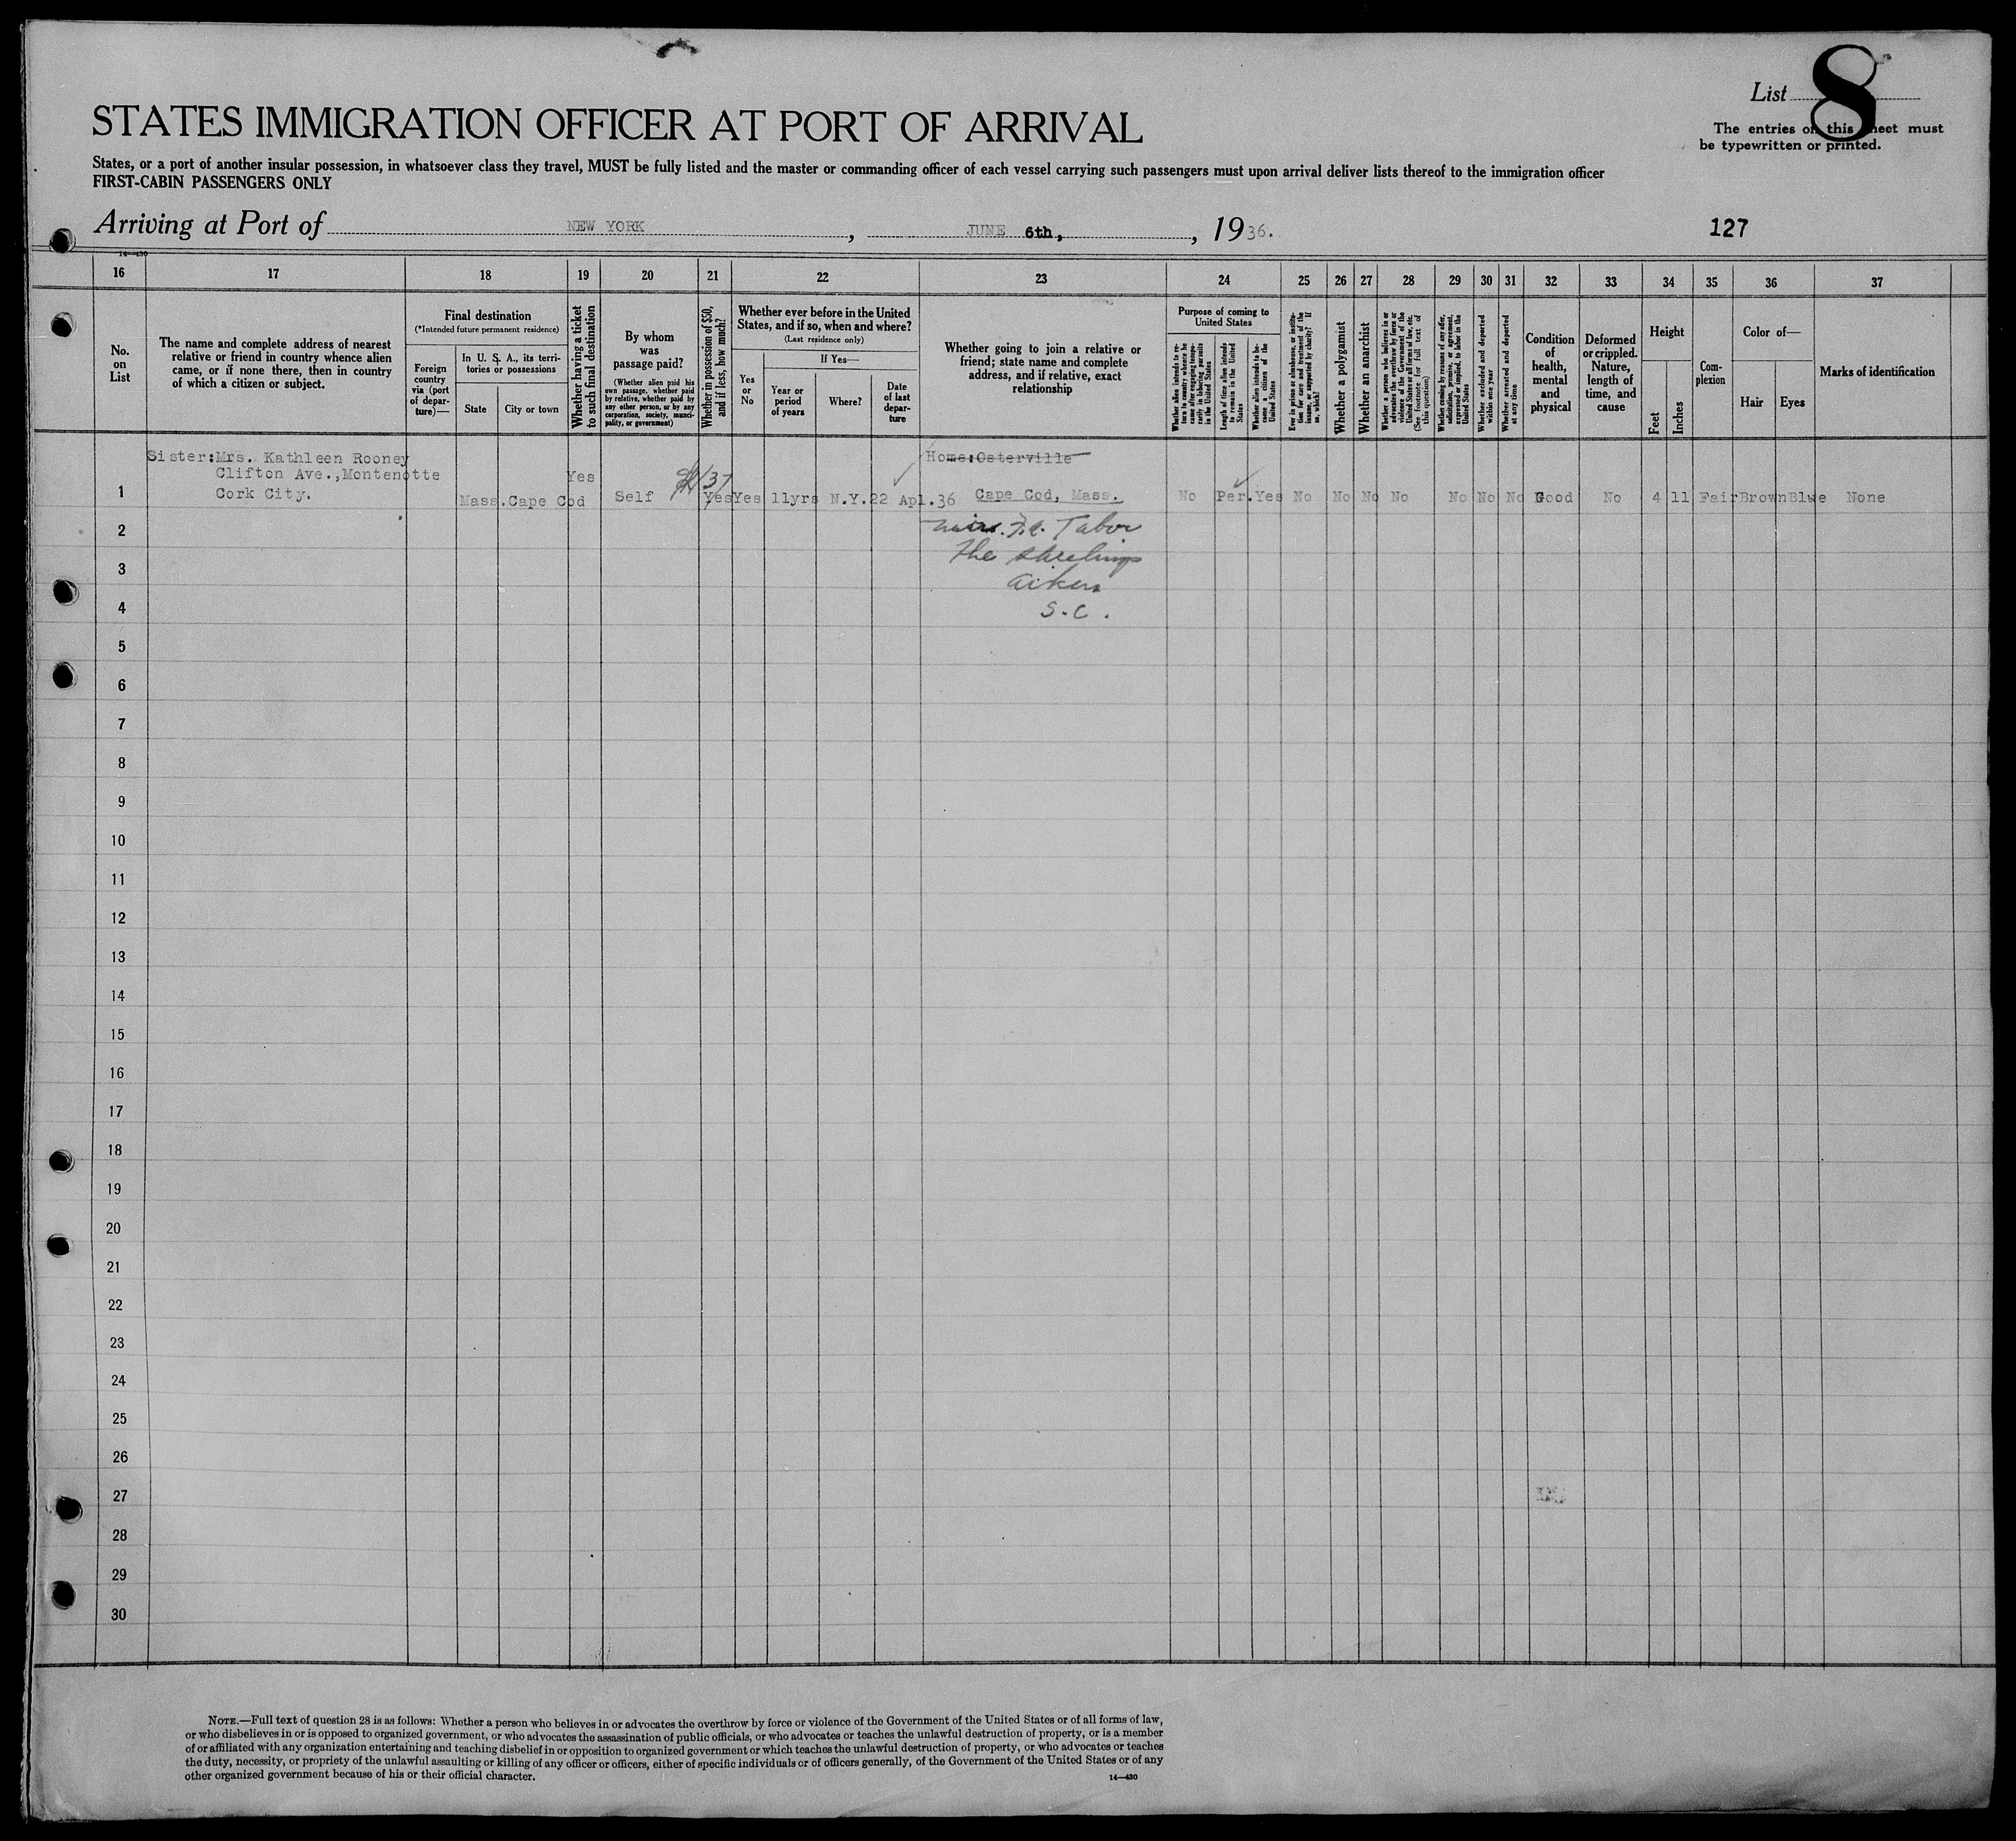 List 8
The entries on this sheet must
be typewritten or printed.
STATES IMMIGRATION OFFICER AT PORT OF ARRIVAL
States, or a port of another insular possession, in whatsoever class they travel, MUST be fully listed and the master or commanding officer of each vessel carrying such passengers must upon arrival deliver lists thereof to the immigration officer
FIRST-CABIN PASSENGERS ONLY
Arriving at Port of NEW YORK, JUNE 6th, , 1936.
127
14—430
16 17 18 19 20 21 22 23 24 25 26 27 28 29 30 31 32 33 34 35 36 37
No.
on
List
The name and complete address of nearest
relative or friend in country whence alien
came, or if none there, then in country
of which a citizen or subject.
Final destination
(*Intended future permanent residence)
Foreign
country
via (port
of depar-
ture)—
In U. S. A., its terri-
tories or possessions
State
City or town
Whether having a ticket
to such final destination
By whom
was
passage paid?
(Whether alien paid his
own passage, whether paid
by relative, whether paid by
any other person, or by any
corporation, society, munci-
pality, or government)
Whether in possession of $50,
and if less, how much?
Whether ever before in the United
States, and if so, when and where?
(Last residence only)
Yes
or
No
If Yes—
Year or
period
of years
Where?
Date
of last
depar-
ture
Whether going to join a relative or
friend; state name and complete
address, and if relative, exact
relationship
Purpose of coming to
United States
Whether alien intends to re-
turn to country whence he
came after engaging tempo-
rarily in laboring pursuits
in the United States
Length of time alien intends
to remain in the United
States
Whether alien intends to be-
come a citizen of the
United States
Ever in prison or almshouse, or institu-
tion for care and treatment of the
insane, or supported by charity? If
so, which?
Whether a polygamist
Whether an anarchist
Whether a person who believes in or
advocates the overthrow by force or
violence of the Government of the
United States or all forms of law, etc.
(See footnote for full text of
this question)
Whether coming by reason of any offer,
solicitation, promise, or agreement,
expressed or implied, to labor in the
United States
Whether excluded and deported
within one year
Whether arrested and deported
at any time
Condition
of
health,
mental
and
physical
Deformed
or crippled.
Nature,
length of
time, and
cause
Height
Feet
Inches
Com-
plexion
Color of—
Hair
Eyes
Marks of identification
Sister:Mrs. Kathleen Rooney
Clifton Ave.,Montenotte
Cork City.
Home:Osterville
Yes
1 Mass. Cape Cod Self Yes Yes 11yrs N.Y. 22 Apl.36 Cape Cod, Mass. No Per. Yes No No No No No No No Good No 4 11 Fair Brown Blue None
2 Tabor
3 The
Aiken
4 S.C.
5
6
7
8
9
10
11
12
13
14
15
16
17
18
19
20
21
22
23
24
25
26
27
28
29
30
NOTE.—Full text of question 28 is as follows: Whether a person who believes in or advocates the overthrow by force or violence of the Government of the United States or of all forms of law,
or who disbelieves in or is opposed to organized government, or who advocates the assassination of public officials, or who advocates or teaches the unlawful destruction of property, or is a member
of or affiliated with any organization entertaining and teaching disbelief in or opposition to organized government or which teaches the unlawful destruction of property, or who advocates or teaches
the duty, necessity, or propriety of the unlawful assaulting or killing of any officer or officers, either of specific individuals or of officers generally, of the Government of the United States or of any
other organized government because of his or their official character.
14—430